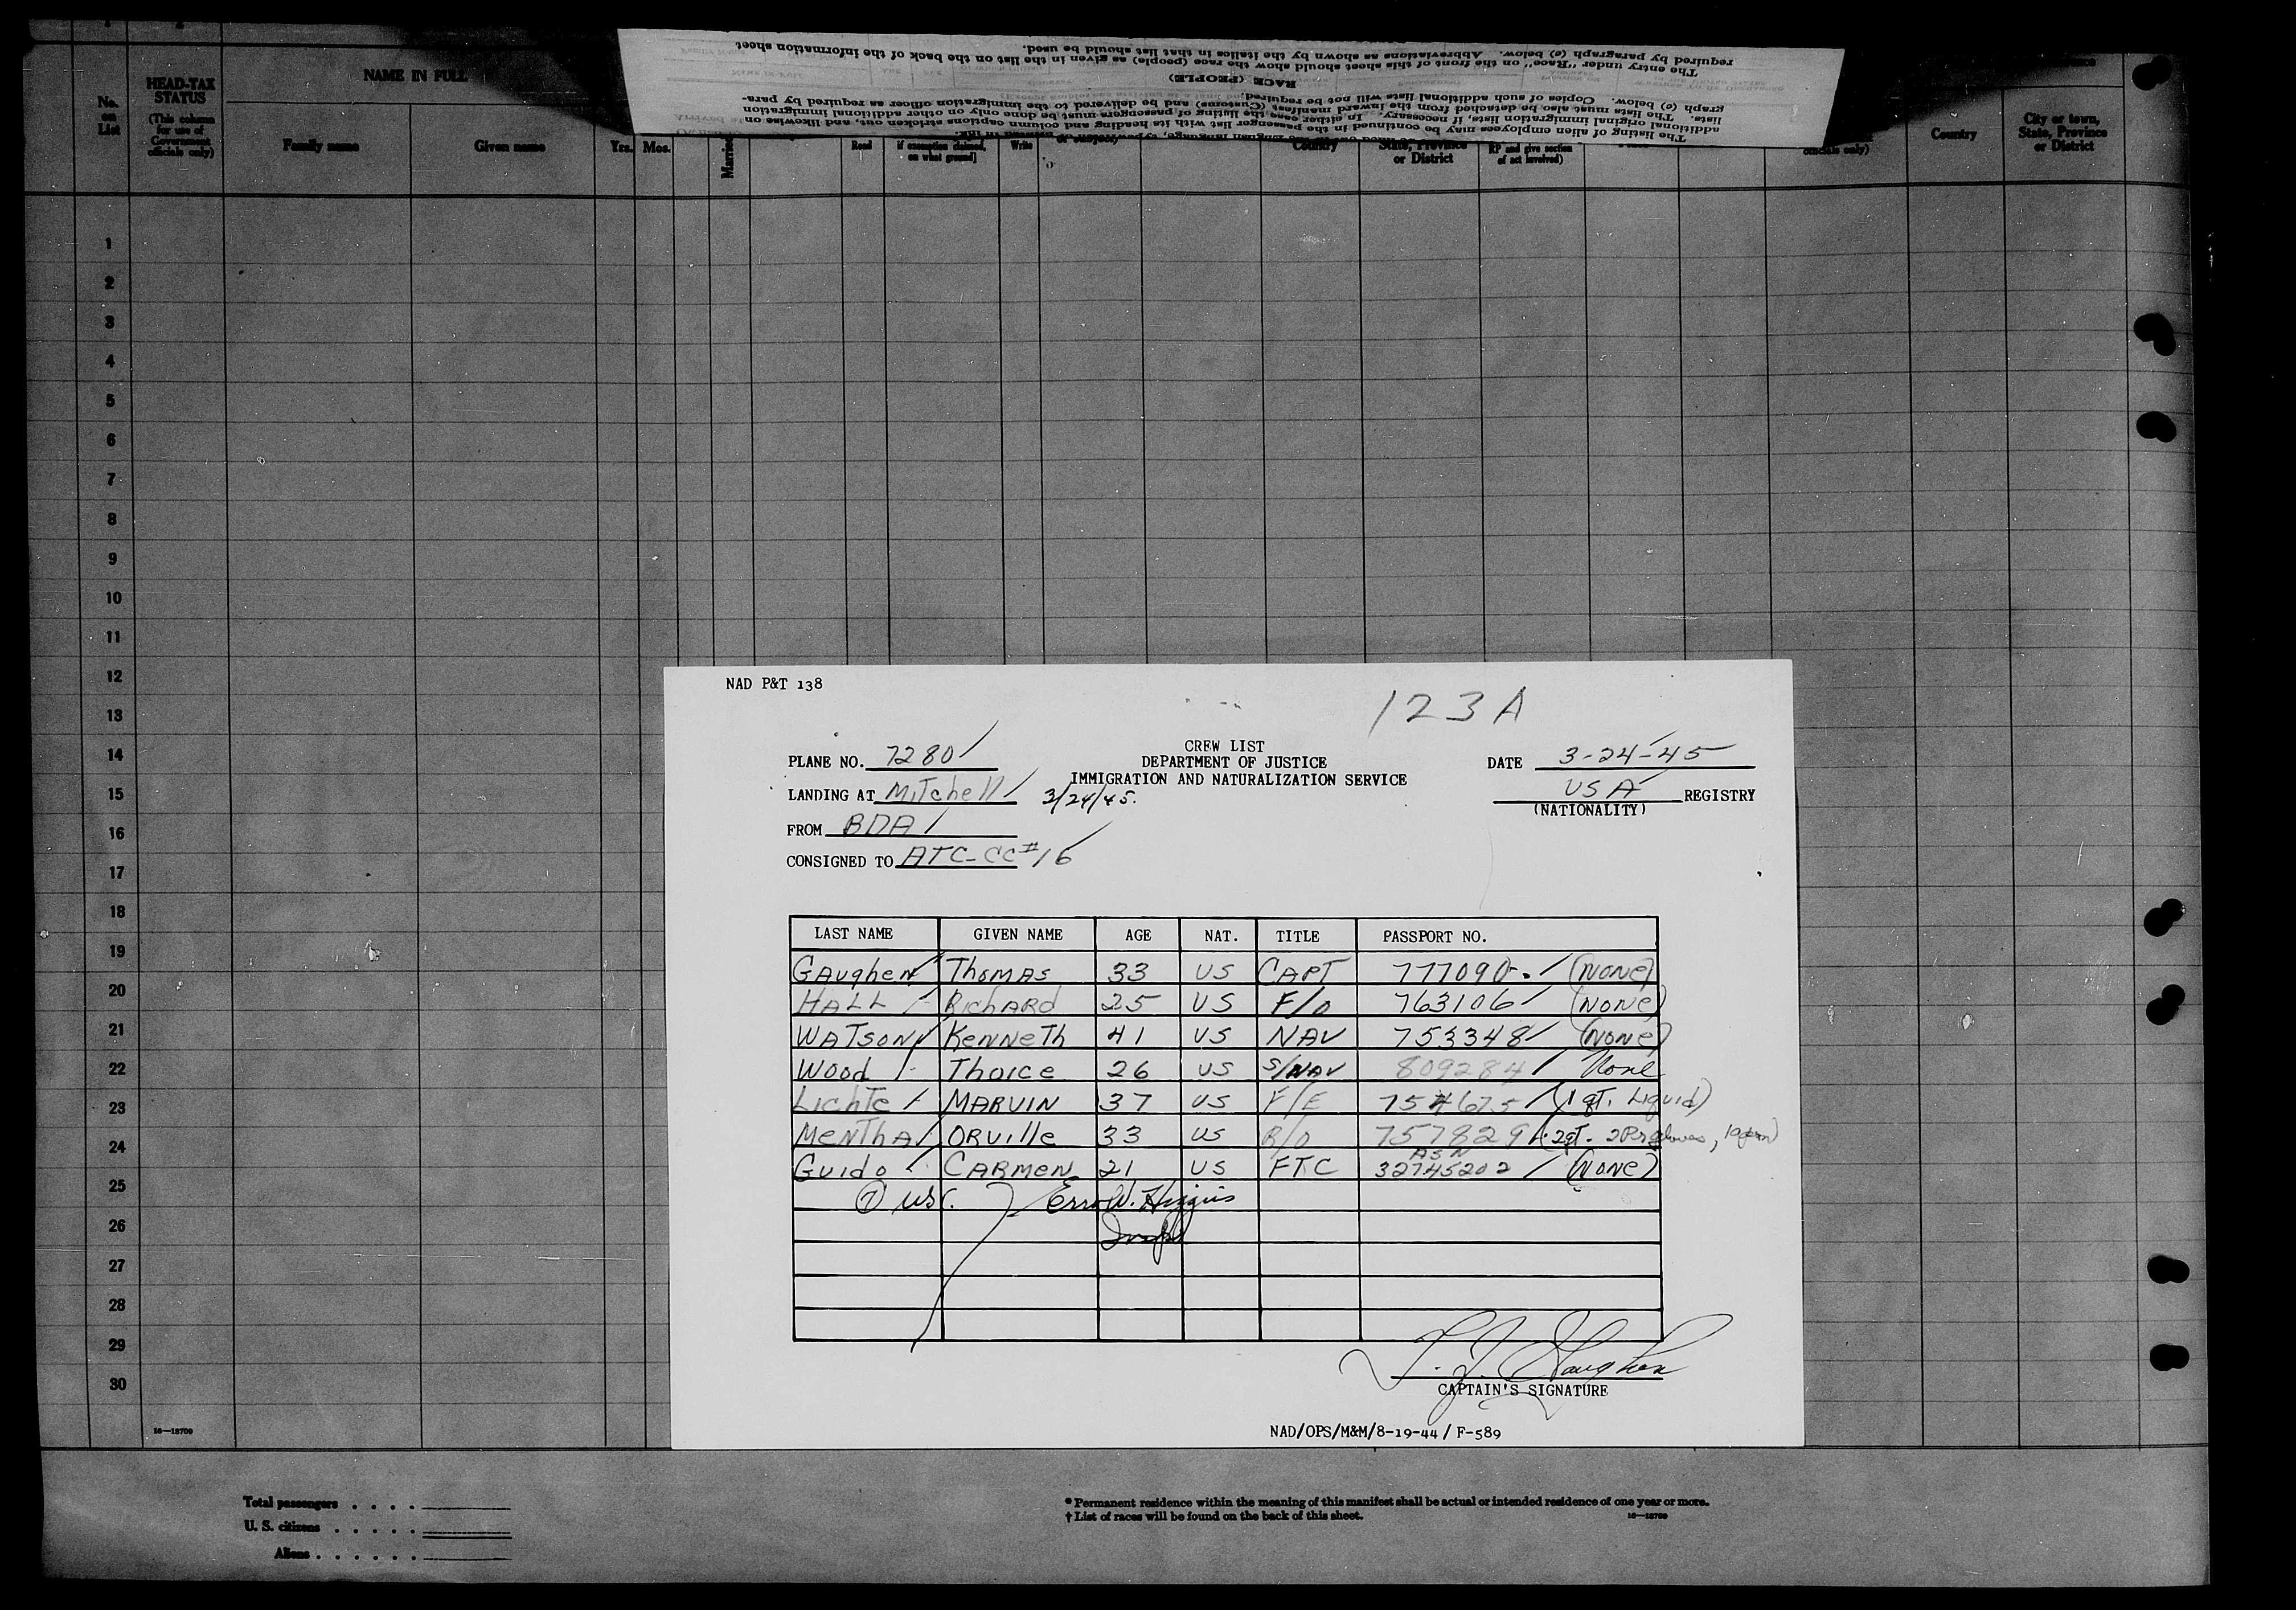 HEAD-TAX STATUS
(This column for use of Government officials only)
No. on List
NAME IN FULL
Family name
Given name
Yrs.
Mos.
Married
Read
if exemption claimed, on what ground]
Write
Country
State, Province or District
RP and give section of act involved)
officials only)
Country
City or town, State, Province or District
The listing of alien employees may be continued in the passenger list with its heading and column captions stricken out, and likewise on
additional original immigration lists, if necessary. In either case the listing of passengers must be done only on other additional immigration
lists. The lists must also be detached from the inward manifest (Customs) and be delivered to the immigration officer as required by para-
graph (e) below. Copies of such additional lists will not be required.
RACE (PEOPLE)
The entry under "Race" on the front of this sheet should show the race (people) as given in the list on the back of the information sheet
required by paragraph (e) below. Abbreviations as shown by the italics in that list should be used.
1
2
3
4
5
6
7
8
9
10
11
12
13
14
15
16
17
18
19
20
21
22
23
24
25
26
27
28
29
30
16—18709
NAD P&T 138
123A
CREW LIST
DEPARTMENT OF JUSTICE
IMMIGRATION AND NATURALIZATION SERVICE
PLANE NO. 7280
DATE 3-24-45
LANDING AT Mitchell 3/24/45.
USA REGISTRY
(NATIONALITY)
FROM BDA
CONSIGNED TO ATC-CC#16
LAST NAME GIVEN NAME AGE NAT. TITLE PASSPORT NO.
GAughen Thomas 33 US CAPT 777090 (None)
HALL RichARd 25 US F/O 763106 (None)
WATSON KenneTh 41 US NAV 753348 (None)
Wood Thorce 26 US S/NAV 809284 None
Lichte MARVIN 37 US F/E 754675 (1 qT. Liquid)
MenThA ORville 33 US R/O 757829 (2qt. 2Pr gloves,
Guido CARMEN 21 US FTC ASN 32745202 (None)
⑦ USC. Erro W. Higgins
Insp
T. J. Gaughen
CAPTAIN'S SIGNATURE
NAD/OPS/M&M/8-19-44/ F-589
Total passengers . . . .
U. S. citizens . . . . .
Aliens . . . . . .
* Permanent residence within the meaning of this manifest shall be actual or intended residence of one year or more.
† List of races will be found on the back of this sheet.
16—18709